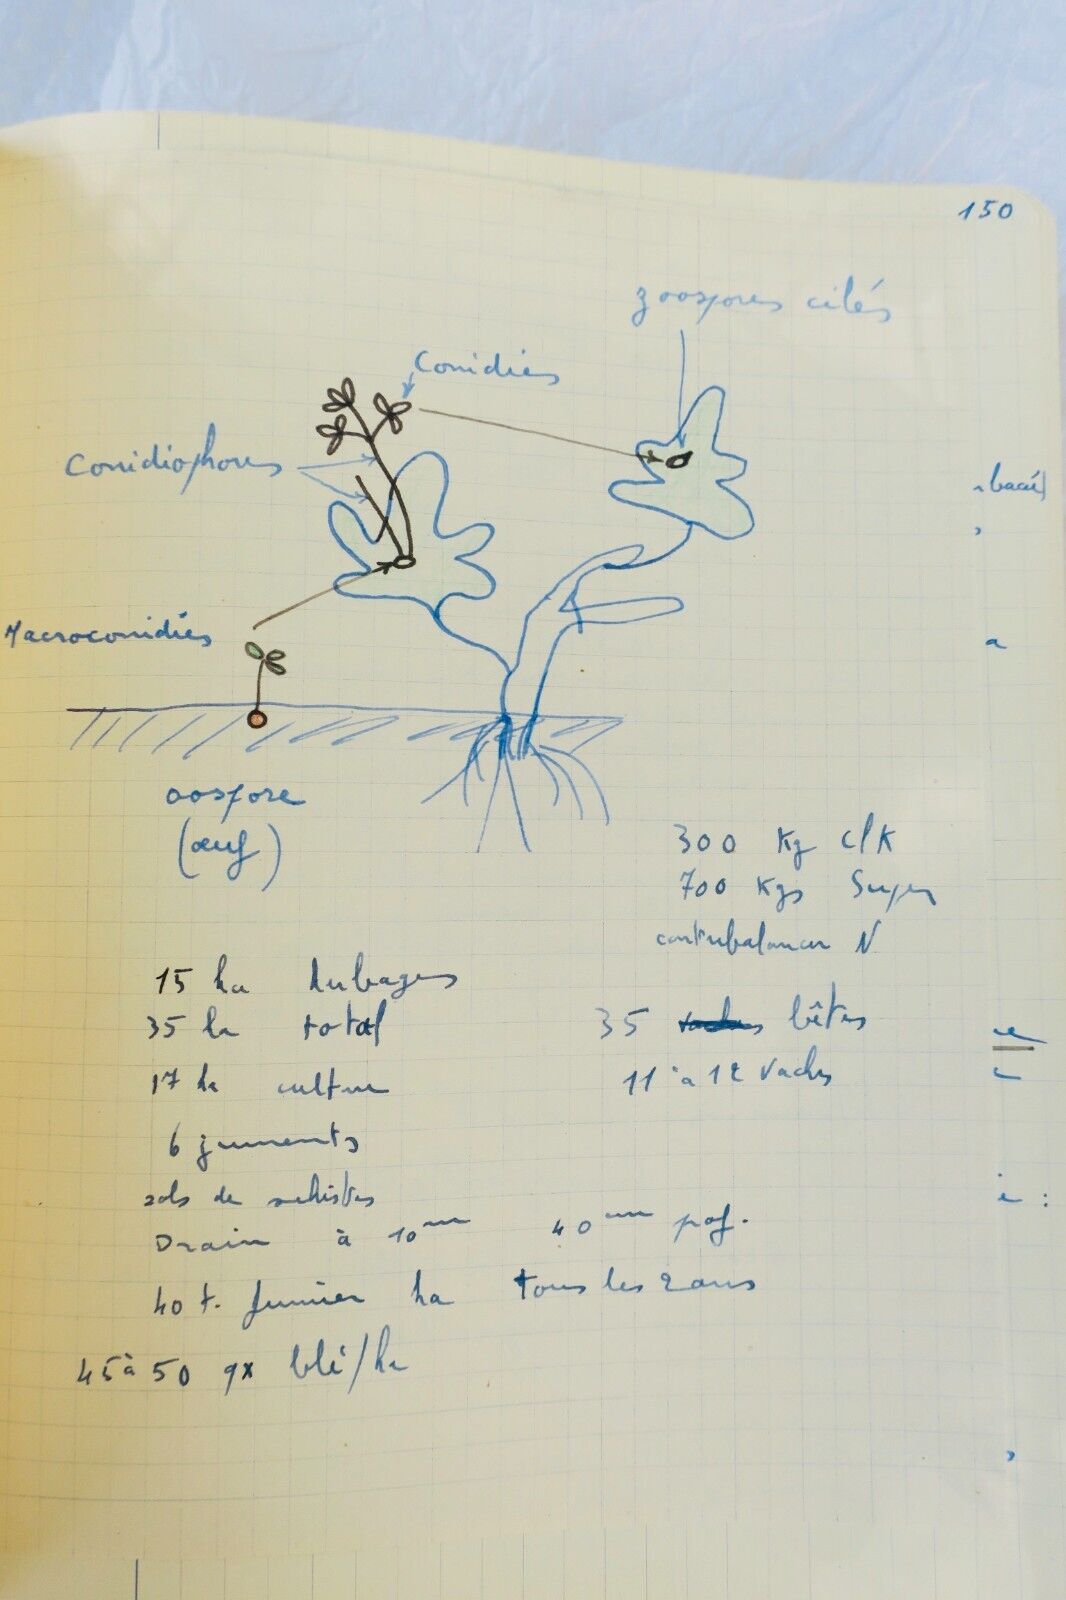 150
zoospores cilés
Conidies
Conidiophores
Macroconidies
oospore
(œuf)
300 Kg ClK
700 Kgs Super
contrebalancer N
15 ha herbages
35 ha total
35 bêtes
17 ha culture
11 à 12 vaches
6 juments
sols de schistes
Drain à 10 40 prof.
40 t. fumier ha tous les 2 ans
45 à 50 qx blé/ha